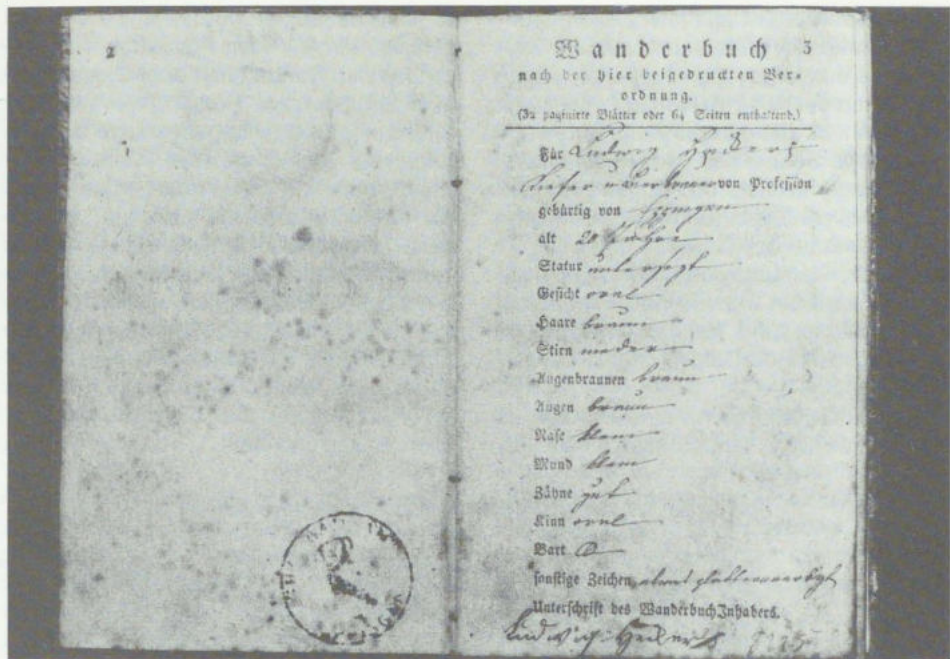 2
Wanderbuch 3
nach der hier beigedruckten Ver-
ordnung.
(32 paginirte Blätter oder 64 Seiten enthaltend.)
Für Ludwig
Kiefer u Bierbrauer von Profession
gebürtig von
alt 20 Jahre
Statur untersezt
Gesicht oval
Haare braun
Stirn nieder
Augenbraunen braun
Augen braun
Nase klein
Mund klein
Zähne gut
Kinn oval
Bart
sonstige Zeichen, etwas blatternarbigt
Unterschrift des Wanderbuch Inhabers.
Ludwig